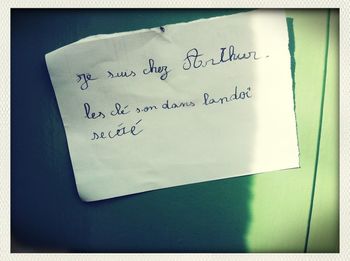 je suis chez Arthur.
les clé son dans landoi
secété